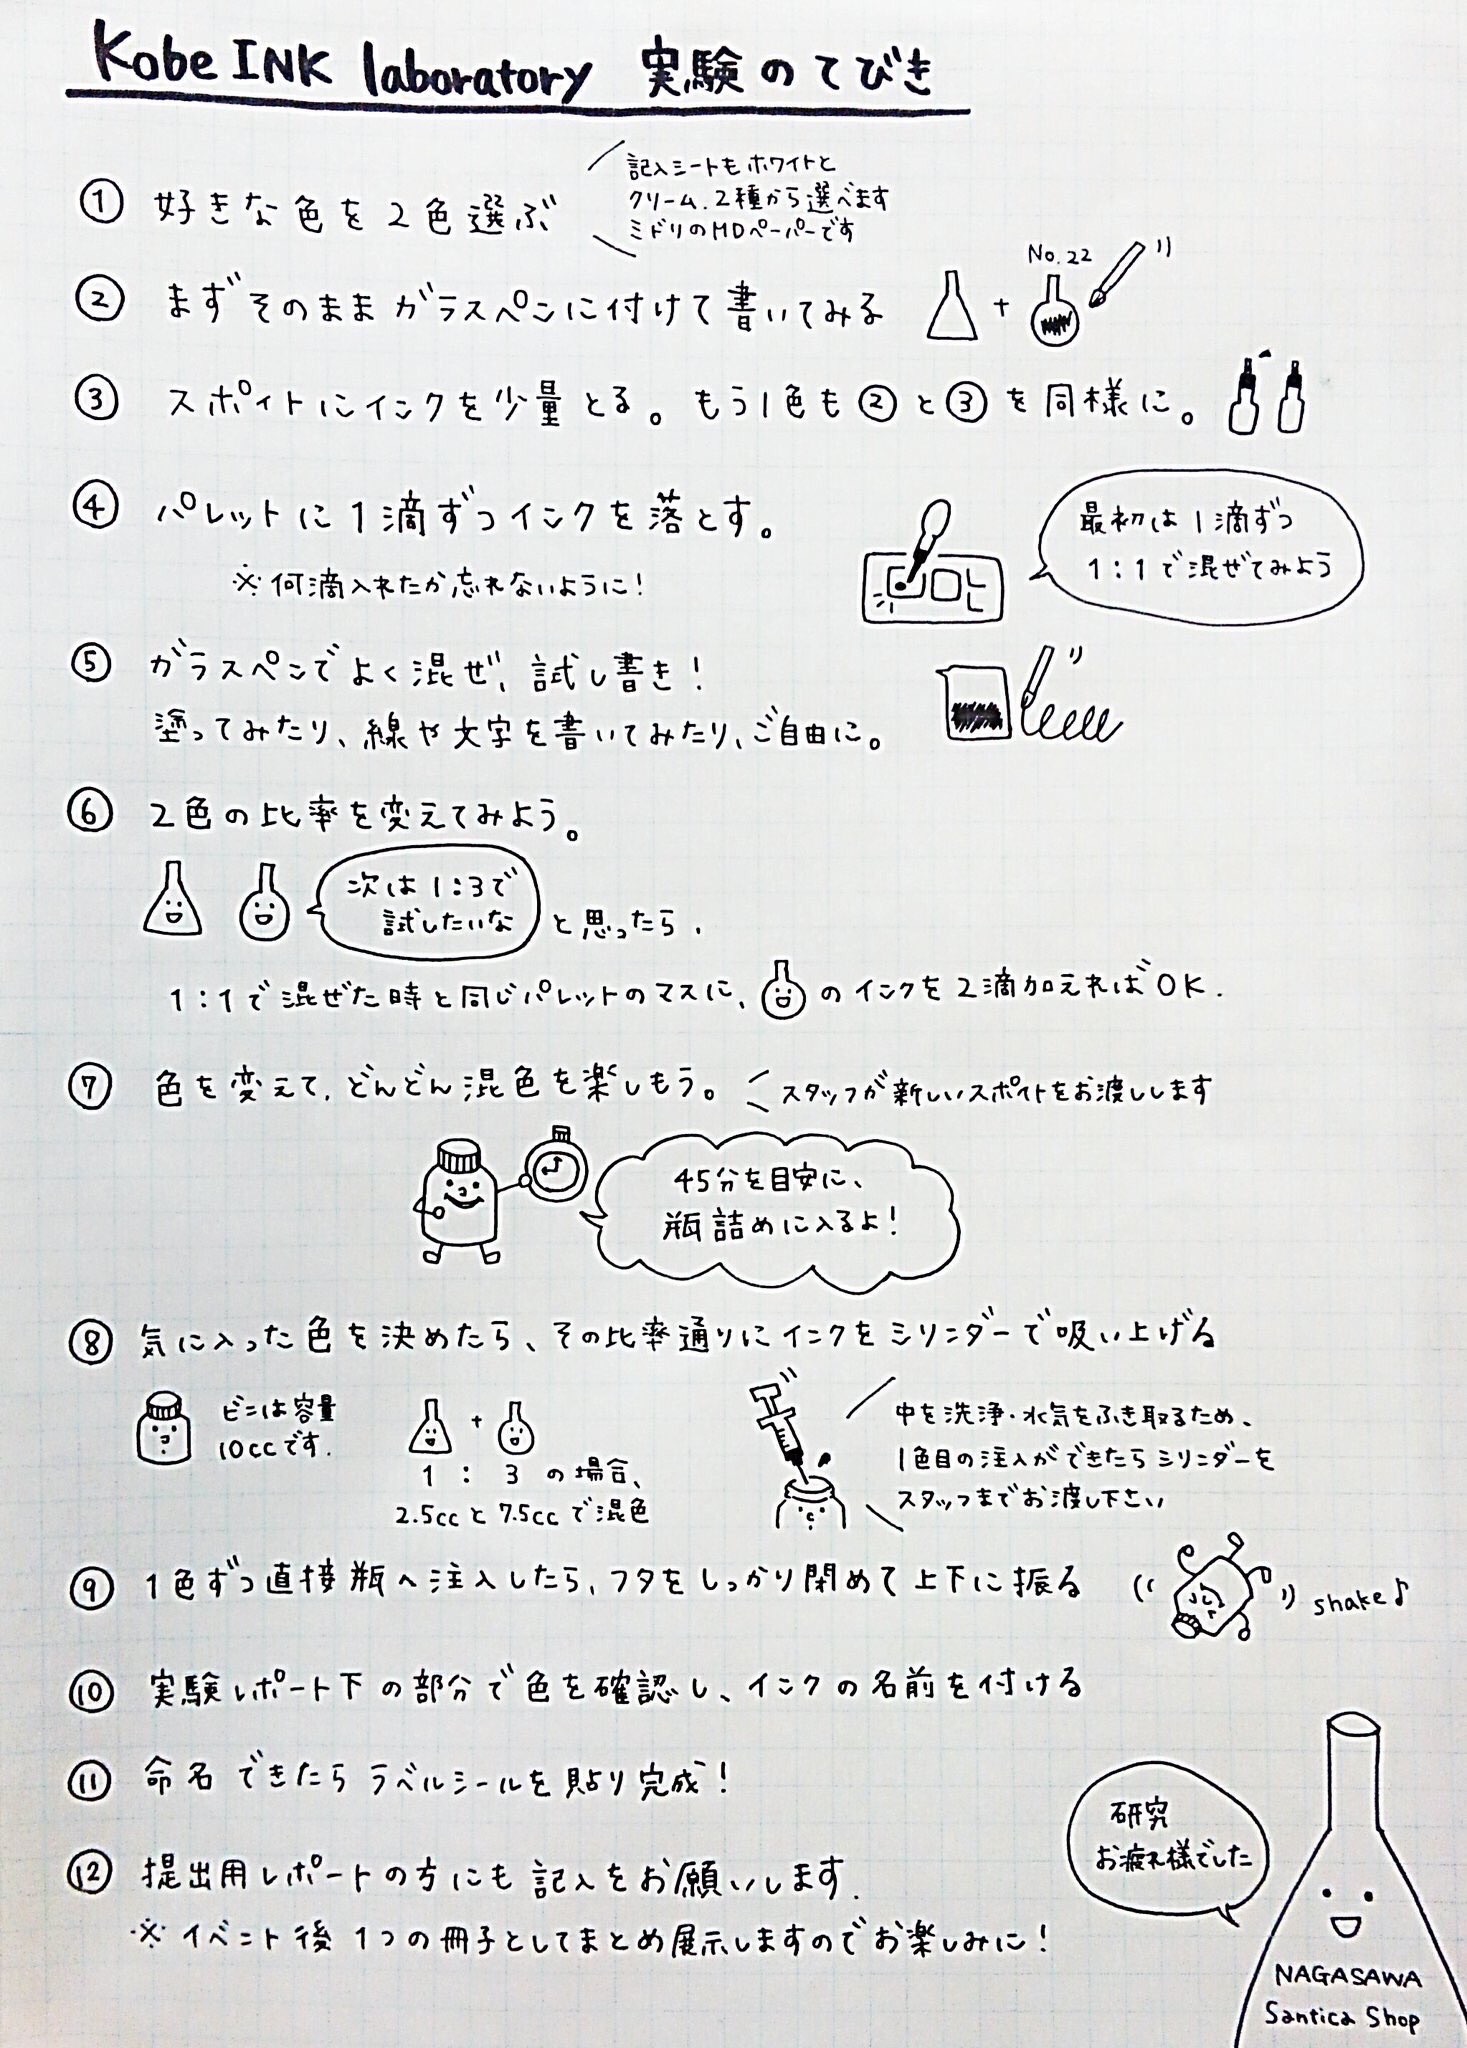 Kobe INK laboratory 実験のてびき
① 好きな色を2色選ぶ
記入シートもホワイトと
クリーム、2種から選べます
ミドリのMDペーパーです
② まずそのままガラスペンに付けて書いてみる
+
No.22
③ スポイトにインクを少量とる。もう1色も②と③を同様に。
④ パレットに1滴ずつインクを落とす。
※何滴入れたか忘れないように!
最初は1滴ずつ
1:1で混ぜてみよう
⑤ ガラスペンでよく混ぜ、試し書き!
塗ってみたり、線や文字を書いてみたり、ご自由に。
⑥ 2色の比率を変えてみよう。
次は1:3で
試したいな
と思ったら、
1:1で混ぜた時と同じパレットのマスに、のインクを2滴加えればOK.
⑦ 色を変えて、どんどん混色を楽しもう。
スタッフが新しいスポイトをお渡しします
45分を目安に、
瓶詰めに入るよ!
⑧ 気に入った色を決めたら、その比率通りにインクをシリンダーで吸い上げる
ビンは容量
10ccです.
+
1 : 3 の場合、
2.5ccと7.5ccで混色
中を洗浄・水気をふき取るため、
1色目の注入ができたらシリンダーを
スタッフまでお渡し下さい
⑨ 1色ずつ直接瓶へ注入したら、フタをしっかり閉めて上下に振る
shake♪
⑩ 実験レポート下の部分で色を確認し、インクの名前を付ける
⑪ 命名できたらラベルシールを貼り完成!
⑫ 提出用レポートの方にも記入をお願いします.
※イベント後1つの冊子としてまとめ展示しますのでお楽しみに!
研究
お疲れ様でした
NAGASAWA
Santica Shop